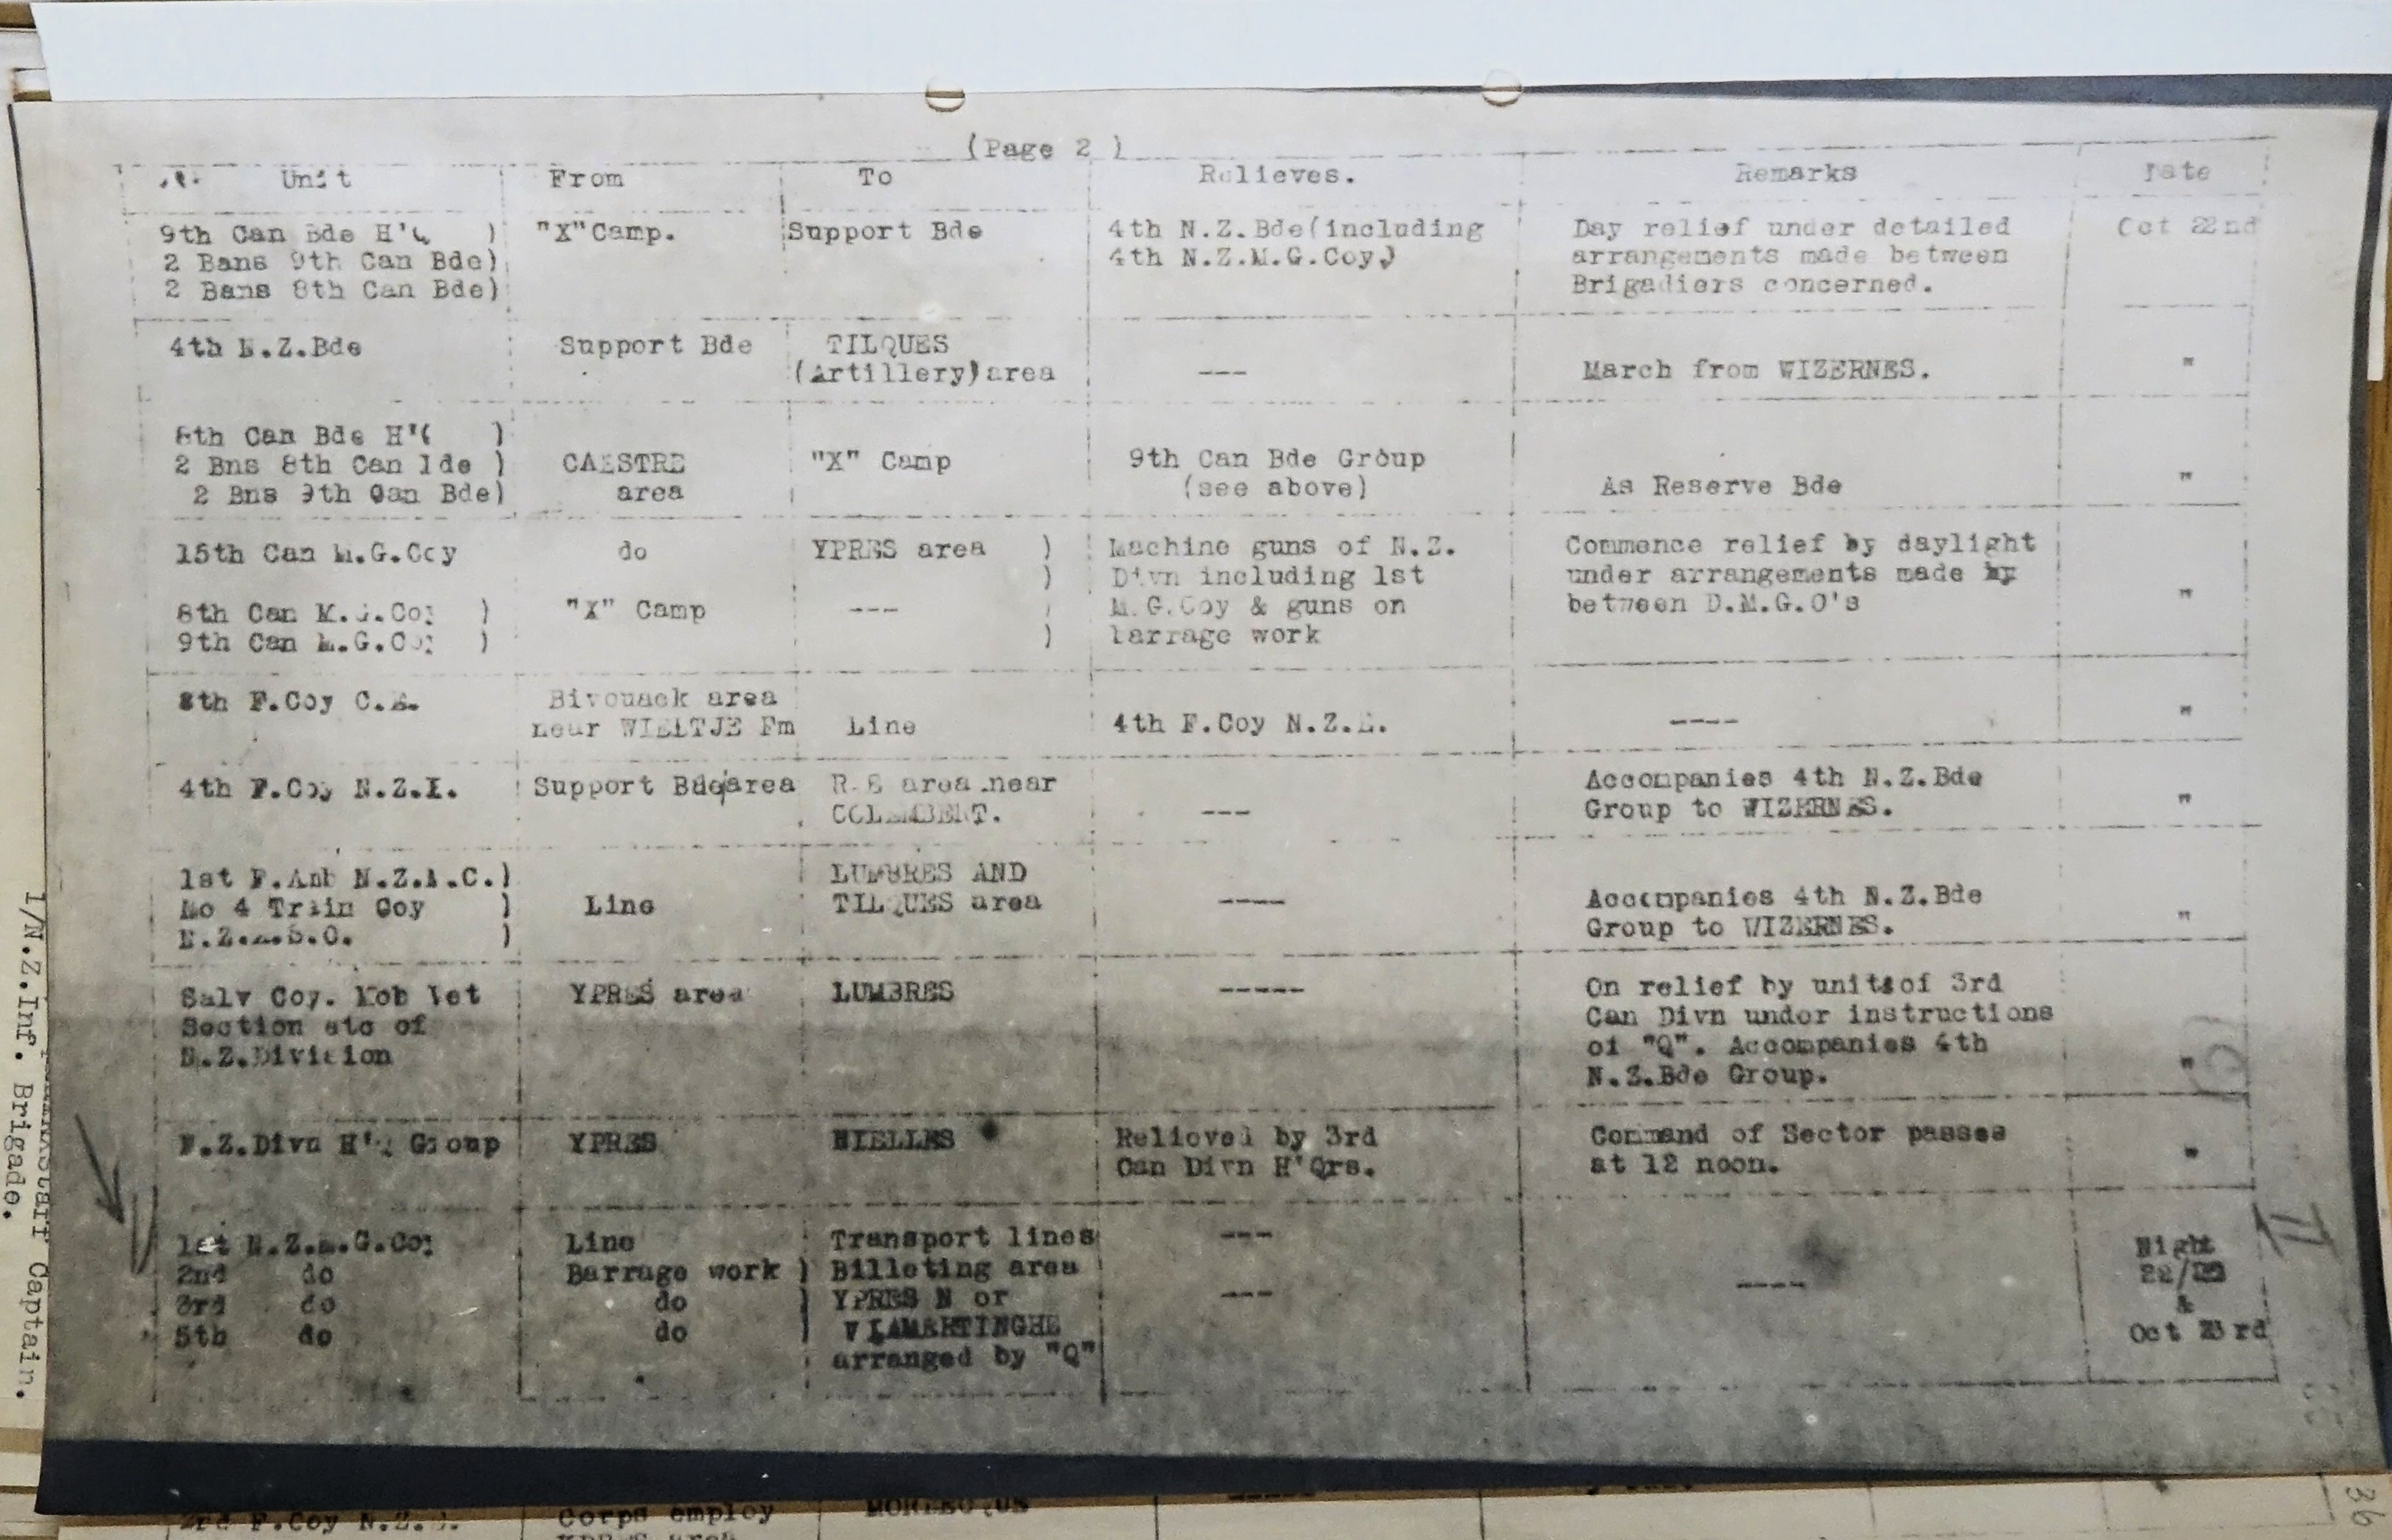 (Page 2 )
Unit From To Relieves. Remarks Date
9th Can Bde H'Q ) "X"Camp. Support Bde 4th N.Z.Bde(including Day relief under detailed Oct 22nd
2 Bans 9th Can Bde) 4th N.Z.M.G.Coy) arrangements made between
2 Bans 8th Can Bde) Brigadiers concerned.
4th N.Z.Bde Support Bde TILQUES
(Artillery)area --- March from WIZERNES. "
8th Can Bde H'Q )
2 Bns 8th Can Bde ) CAESTRE "X" Camp 9th Can Bde Group
2 Bns 9th Can Bde) area (see above) As Reserve Bde "
15th Can M.G.Coy do YPRES area ) Machine guns of N.Z. Commence relief by daylight
) Divn including 1st under arrangements made by
8th Can M.G.Coy ) "X" Camp --- ) M.G.Coy & guns on between D.M.G.O's "
9th Can M.G.Coy ) ) barrage work
8th F.Coy C.E. Bivouack area
near WIELTJE Fm Line 4th F.Coy N.Z.E. ---- "
4th F.Coy N.Z.E. Support Bde area area near Accompanies 4th N.Z.Bde
COLEMBERT. --- Group to WIZERNES. "
1st F.Amb N.Z.M.C.) LUMBRES AND
No 4 Train Coy ) Line TILQUES area ---- Accompanies 4th N.Z.Bde
N.Z.A.S.C. ) Group to WIZERNES. "
Salv Coy. Mob Vet YPRES area LUMBRES ----- On relief by units of 3rd
Section etc of Can Divn under instructions
N.Z.Division of "Q". Accompanies 4th
N.Z.Bde Group. "
N.Z.Divn H'Q Group YPRES NIELLES Relieved by 3rd Command of Sector passes
Can Divn H'Qrs. at 12 noon. "
1st N.Z.M.G.Coy Line Transport lines --- Night
2nd do Barrage work ) Billeting area ---- 22/23
3rd do do ) YPRES N or --- &
5th do do ) VLAMERTINGHE Oct 23rd
arranged by "Q"
II
Captain.
I/N.Z.Inf. Brigade.
F.Coy N.Z.E. Corps employ
36